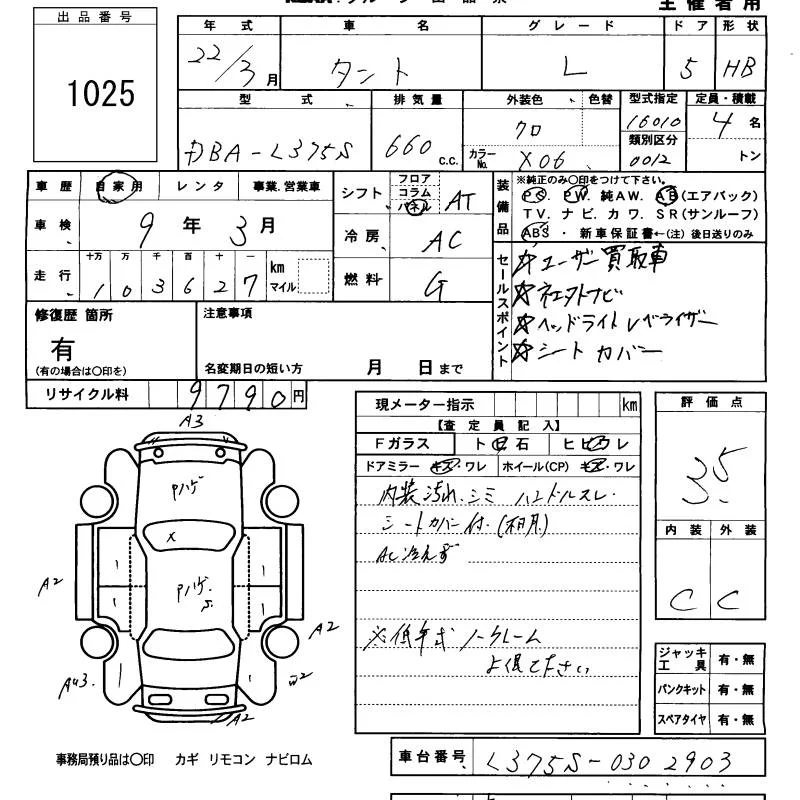 主催者用
出品番号
1025
年式 車名 グレード ドア 形状
22/3月 タント L 5 HB
型式 排気量 外装色 色替 型式指定 定員・積載
DBA-L375S 660 c.c. クロ 16010 4名
カラーNo. X06 類別区分 0012 トン
車歴 自家用 レンタ 事業.営業車
シフト フロア コラム パネル AT
装備品 ※純正のみ〇印をつけて下さい。
PS. PW. 純AW. AB(エアバック)
TV. ナビ. カワ. SR(サンルーフ)
ABS ・ 新車保証書←(注) 後日送りのみ
車検 9年3月
冷房 AC
走行 十万 万 千 百 十 一 km マイル
1 0 3 6 2 7
燃料 G
セールスポイント
☆ユーザー買取車
☆社外ナビ
☆ヘッドライトレベライザー
☆シートカバー
修復歴 箇所
有
(有の場合は〇印を)
注意事項
名変期日の短い方 月 日まで
リサイクル料 9790円
現メーター指示 km
【査定員記入】
Fガラス ト 石 ヒ レ
ドアミラー キズ・ワレ ホイール(CP) キズ・ワレ
内装汚れ.シミ ハンドルスレ.
シートカバー付.(不明)
AC冷えず
※低年式 ノークレーム
よ
評価点
3.5
内装 外装
C C
A3
Pハゲ
X
Pハゲ.
S.
A2
A2
A2
ジャッキ 工具 有・無
パンクキット 有・無
スペアタイヤ 有・無
事務局預り品は〇印 カギ リモコン ナビロム
車台番号 L375S-0302903